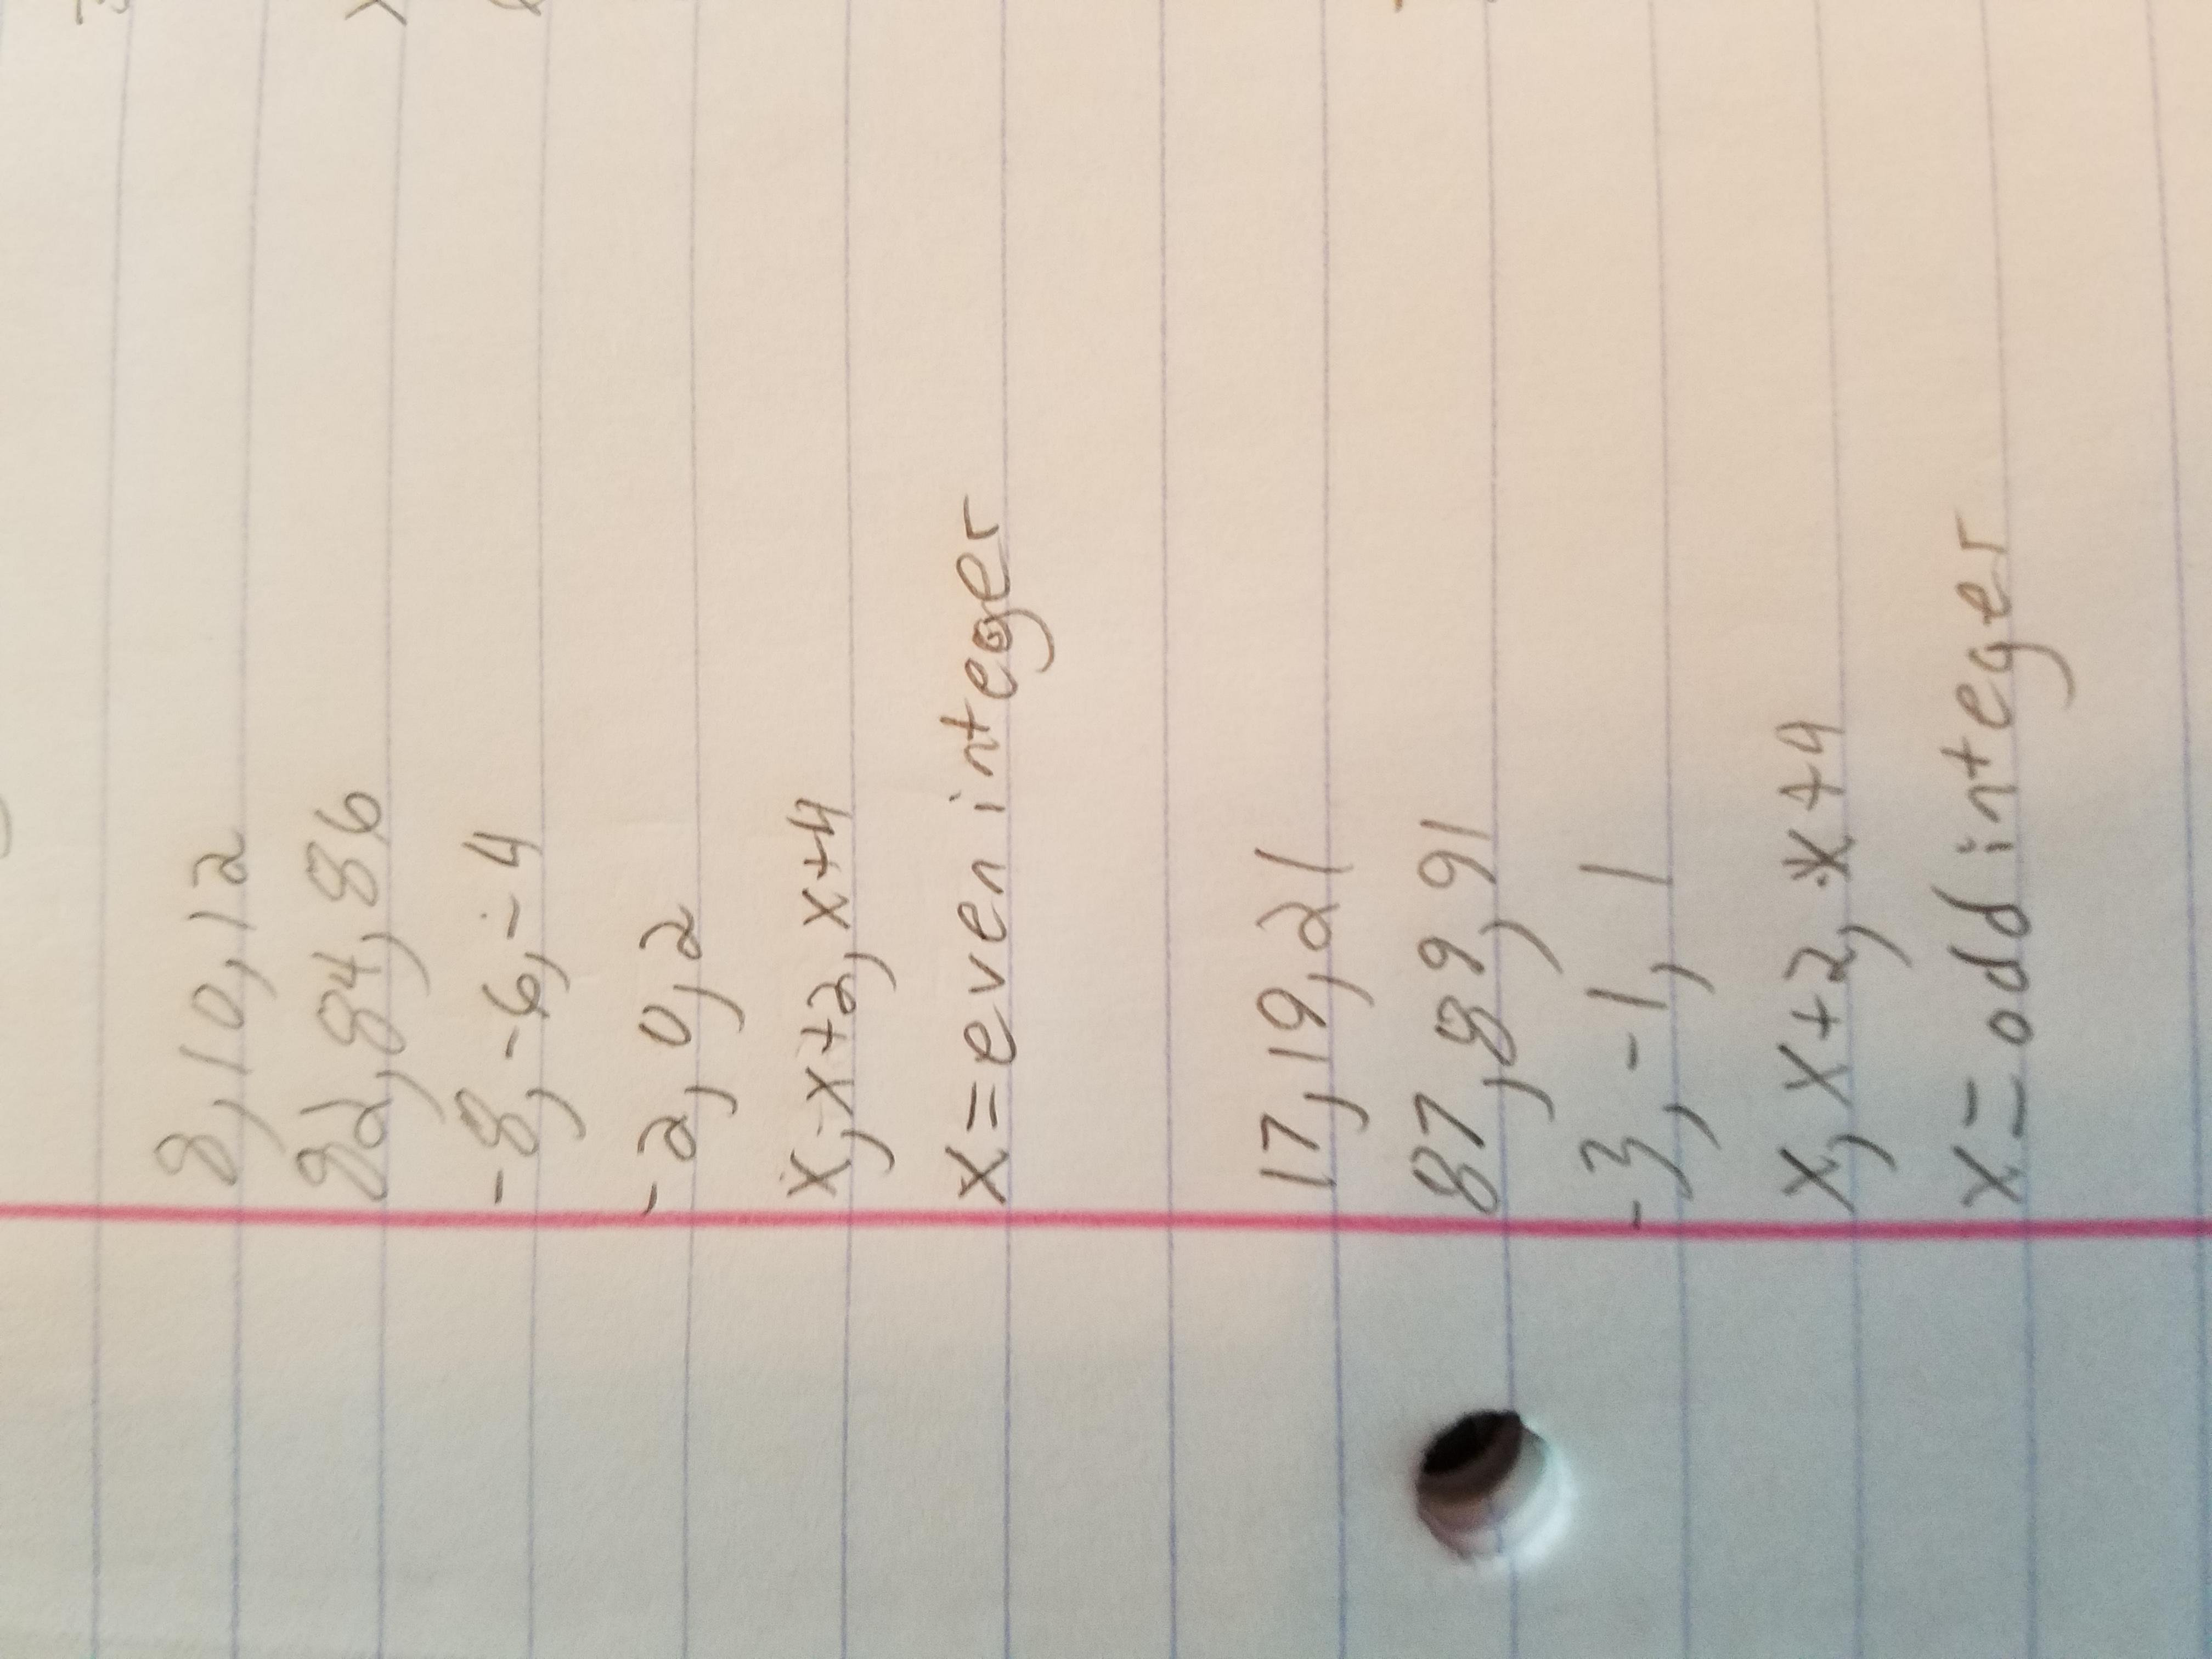 8, 10, 12
82, 84, 86
-8, -6, -4
-2, 0, 2
x, x+2, x+4
x = even integer
17, 19, 21
87, 89, 91
-3, -1, 1
x, x+2, x+4
x = odd integer